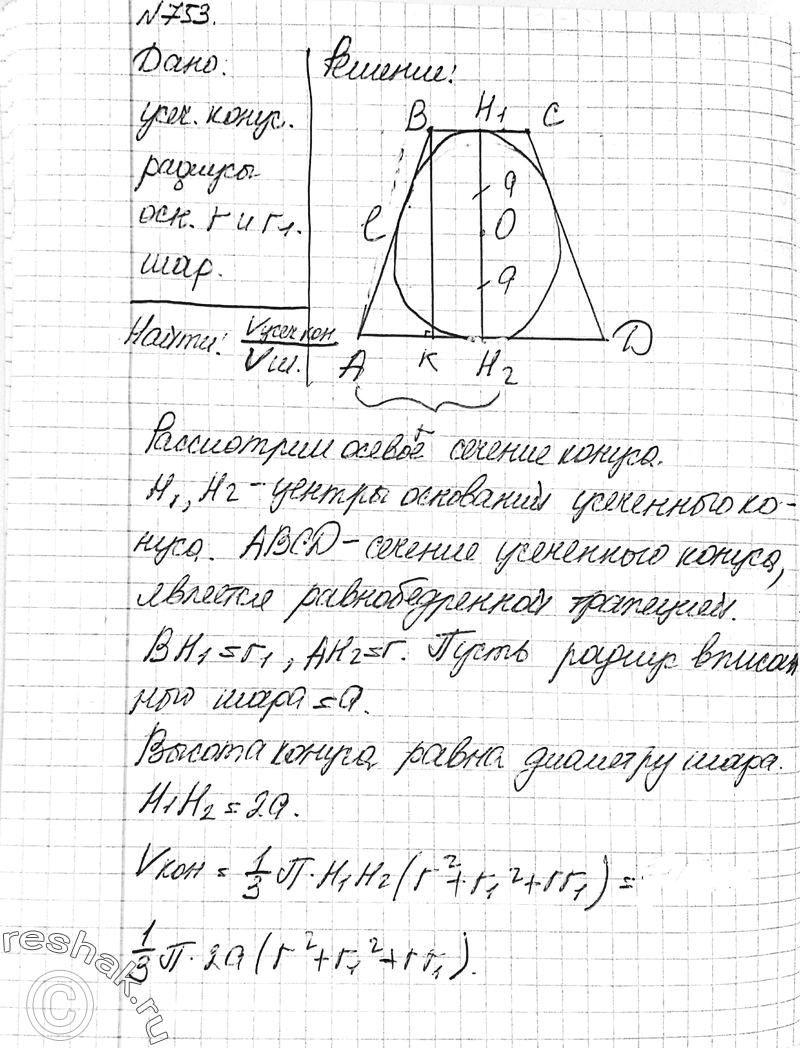 N753.
Дано:
усеч. конус.
радиусы
осн. r и r₁.
шар.
Найти: Vусеч кон / Vш.
Решение:
B H₁ C
a
l O
a
A K H₂ D
r
Рассмотрим осевое сечение конуса.
H₁, H₂ - центры оснований усеченного ко-
нуса. ABCD - сечение усеченного конуса,
является равнобедренной трапецией.
BH₁ = r₁, AH₂ = r. Пусть радиус вписан
ного шара = a.
Высота конуса равна диаметру шара.
H₁H₂ = 2a.
Vкон = 1/3 π · H₁H₂ (r² + r₁² + rr₁) =
1/3 π · 2a (r² + r₁² + rr₁).
© reshak.ru